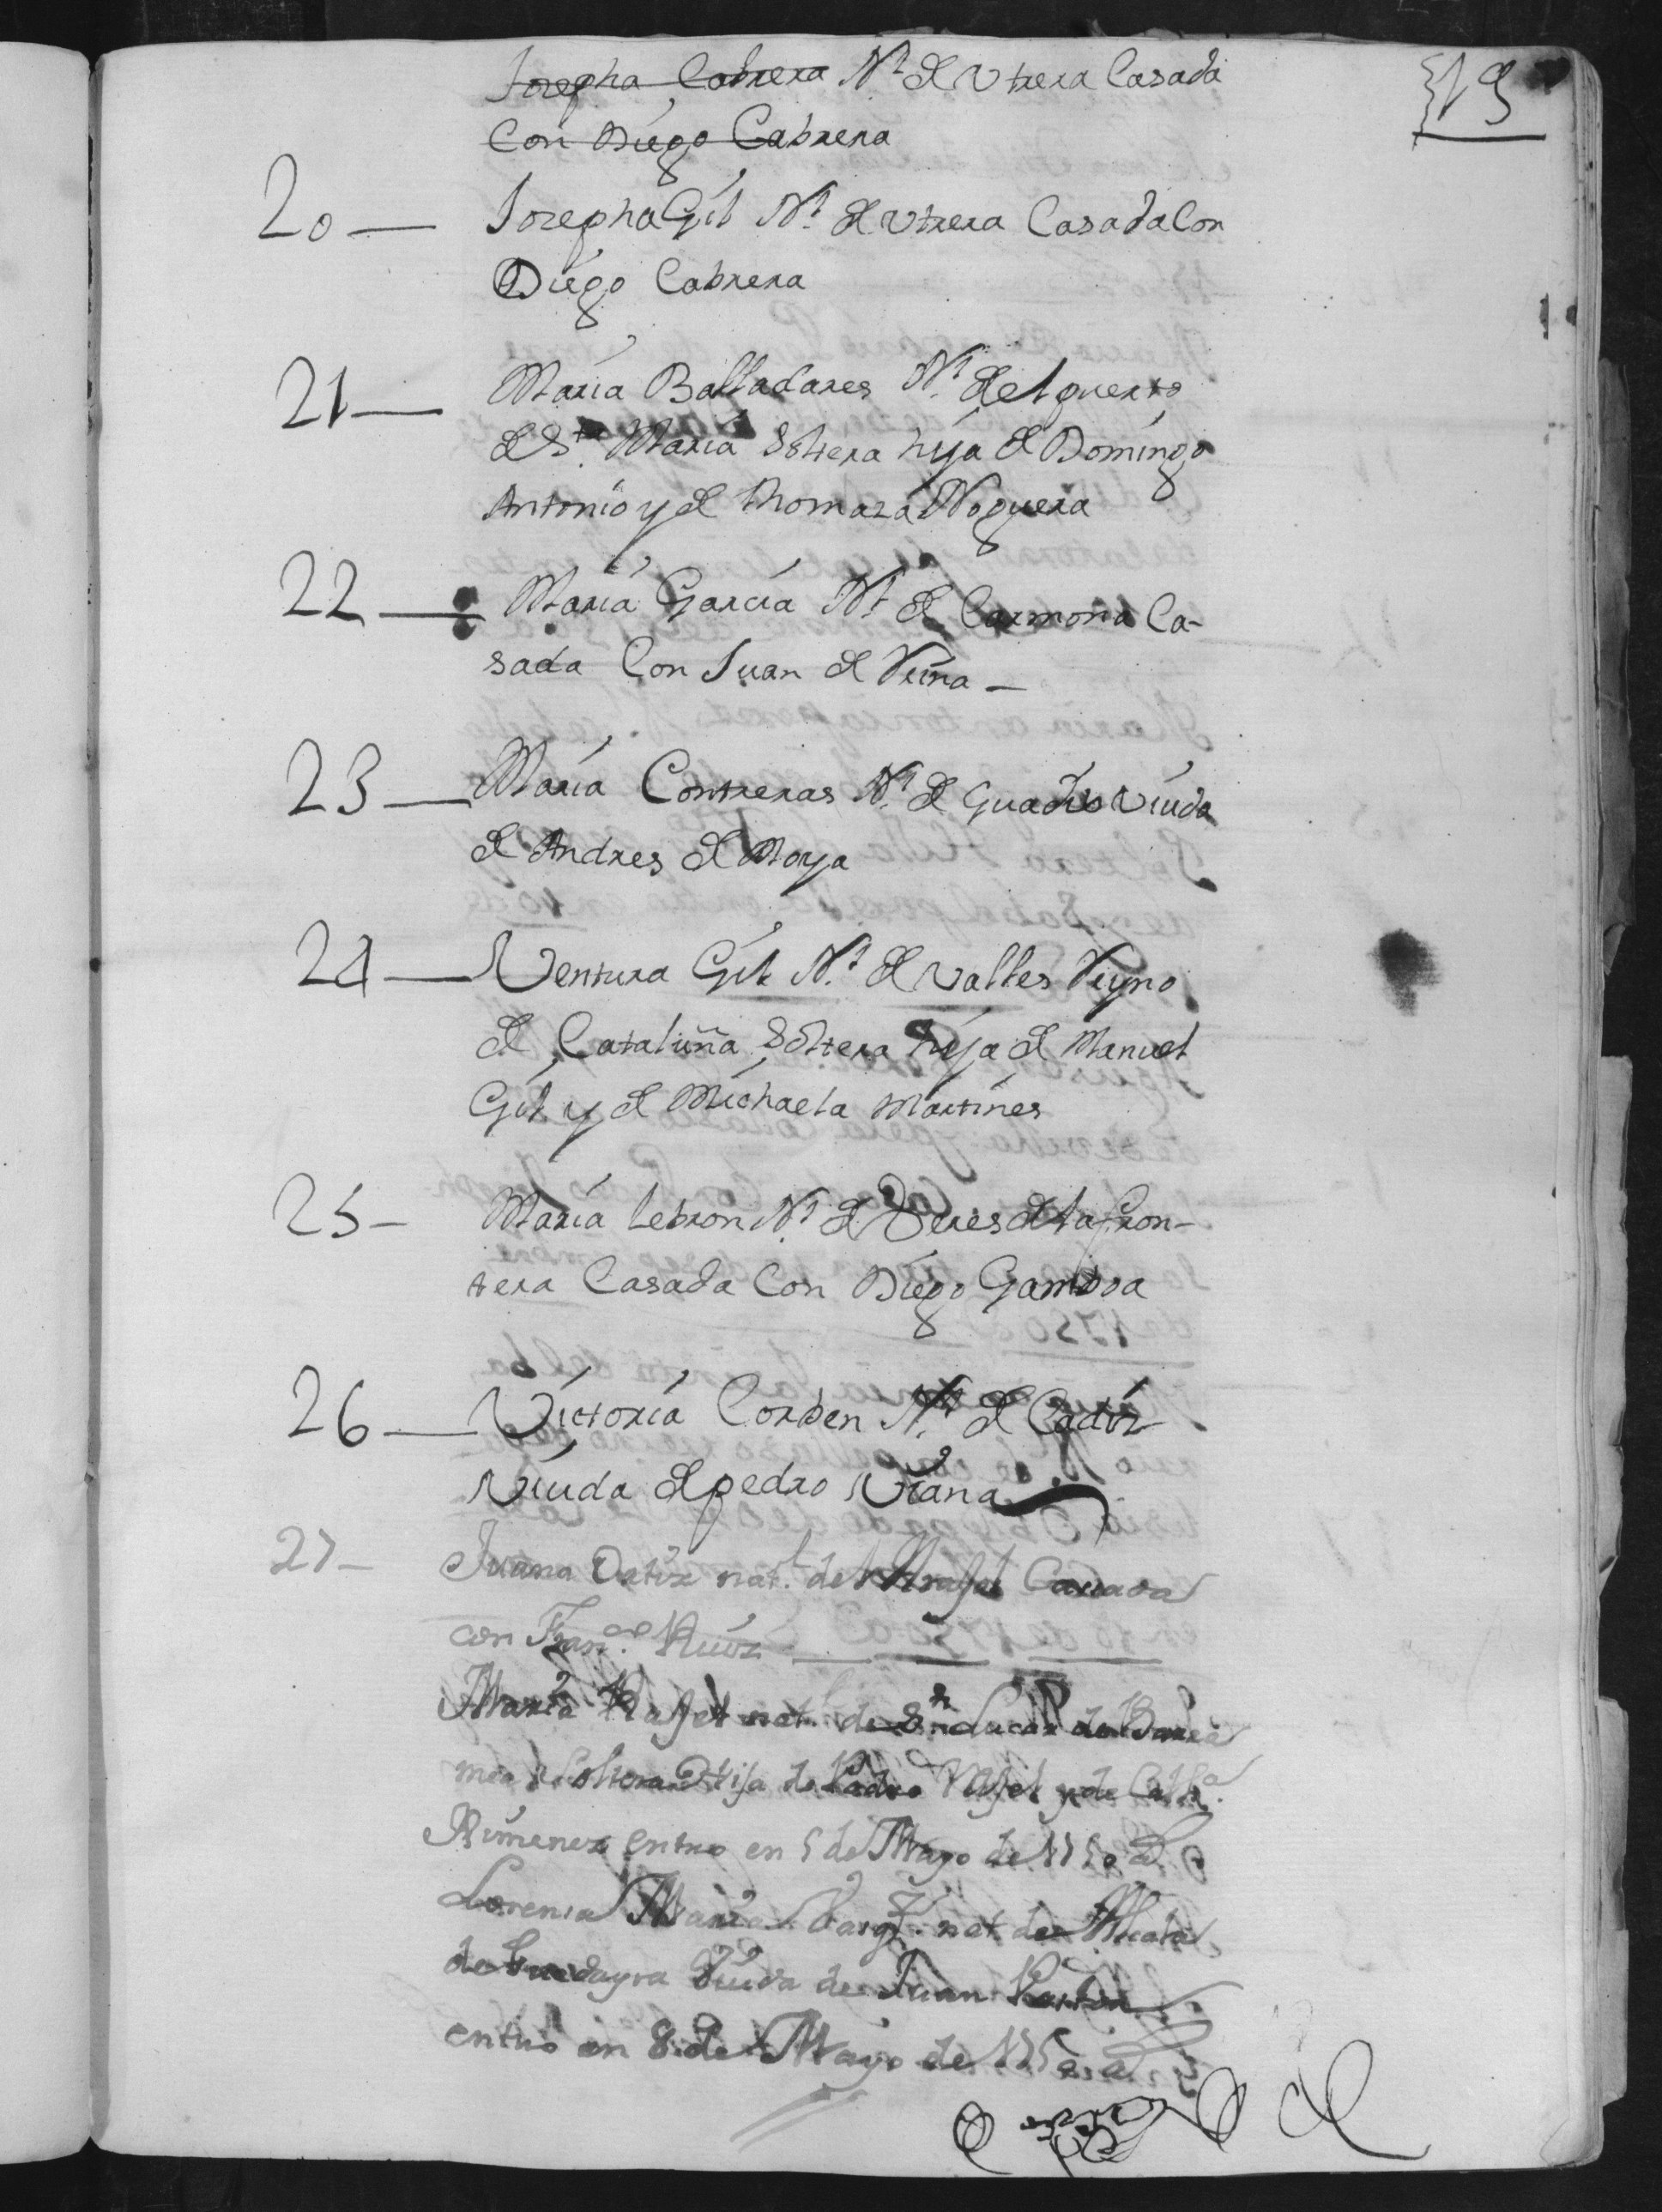 19
Josepha Cabrera Nt. de Utrera Casada
Con Diego Cabrera
20 — Josepha Gil Nt. de Utrera Casada Con
Diego Cabrera
21 — Maria Balladares Nt. del puerto
de Sta. Maria Soltera hija de Domingo
Antonio y de Thomaza Noguera
22 — Maria Garcia Nt. de Carmona Ca-
sada Con Juan de Viña —
23 — Maria Contreras Nt. de Guadis Viuda
de Andres de Moya
24 — Ventura Gil Nt. de Valles Reyno
de Cataluña Soltera hija de Manuel
Gil y de Michaela Martines
25 — Maria Lebron Nt. de Xeres de la fron-
tera Casada Con Diego Gamboa
26 — Victoria Corben Nt. de Cadiz
Viuda de pedro Viana
27 — Juana Ortiz nat. del Casada
con Franco. Ruiz
Maria Rafel nat. de Sn Lucar de Barra
meda Soltera Hija de Pedro Rafel y de Catha.
Ximenez entro en 5 de Mayo de 1750
Lorenza Maria nat. de Alcala
de Guadayra Viuda de Juan
entro en 8 de Mayo de 1750